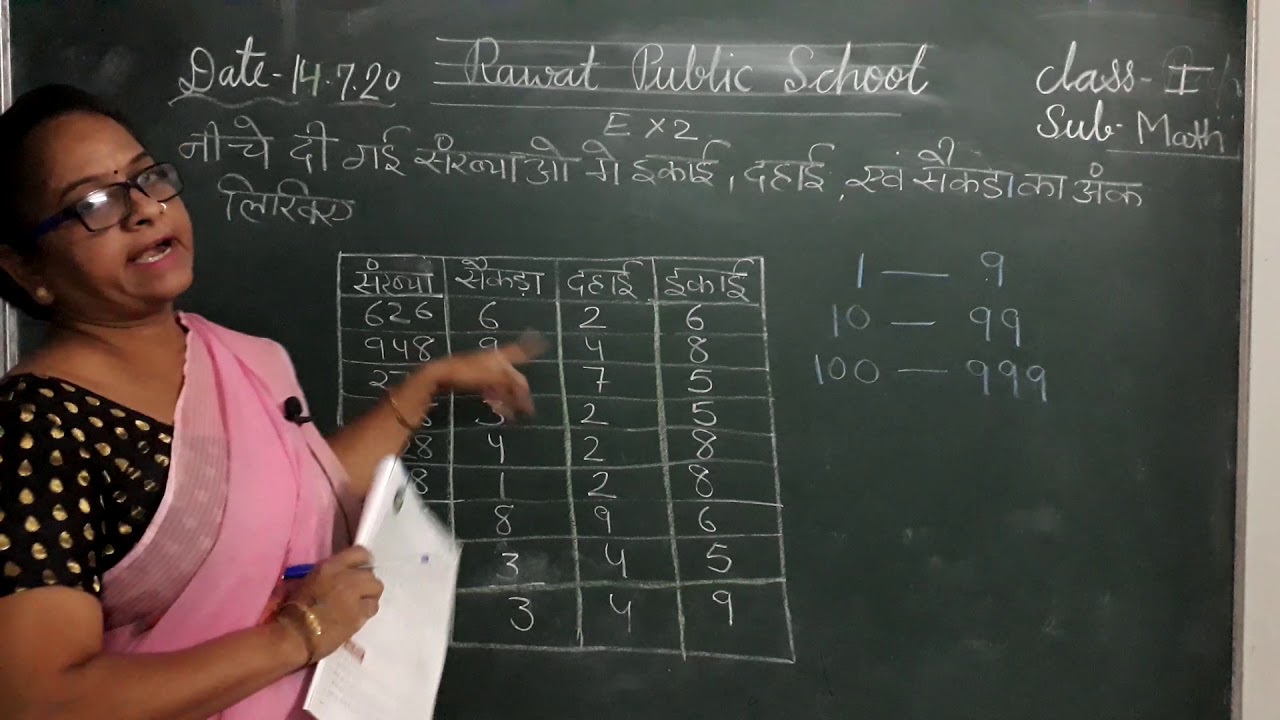 Date-14.7.20 Rawat Public School Class-I
Sub-Math
Ex2
नीचे दी गई संख्याओ मे इकाई, दहाई, एवं सैकडा का अंक
लिखिए
संख्या सैकड़ा दहाई इकाई
626 6 2 6
948 9 4 8
7 5
3 2 5
4 2 8
1 2 8
8 9 6
3 4 5
3 4 9
1 — 9
10 — 99
100 — 999